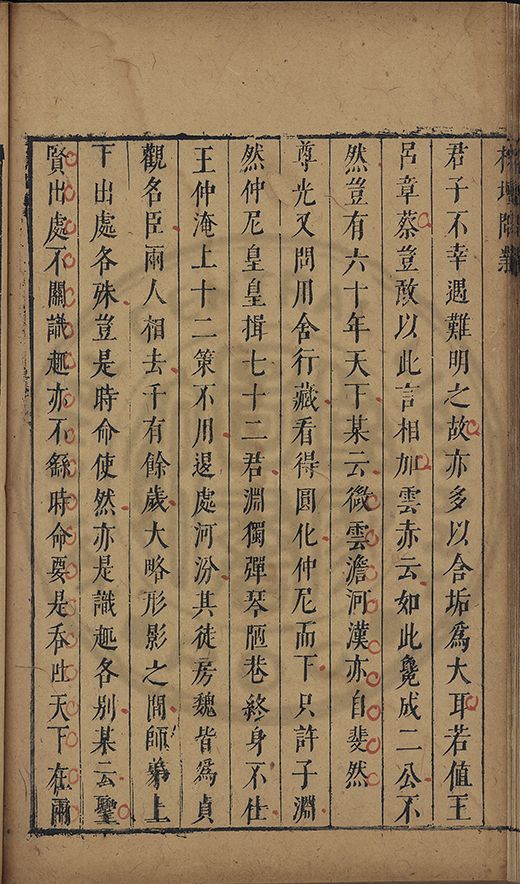 榕壇問業
君子不幸遇難明之故亦多以含垢爲大耳若值王
呂章蔡豈敢以此言相加雲赤云如此纔成二公不
然豈有六十年天下某云微雲澹河漢亦自斐然
尊光又問用舍行藏看得圓化仲尼而下只許子淵
然仲尼皇皇揖七十二君淵獨彈琴陋巷終身不仕
王仲淹上十二策不用退處河汾其徒房魏皆爲貞
觀名臣兩人相去千有餘歲大略形影之間師弟上
下出處各殊豈是時命使然亦是識趣各別某云聖
賢出處不關識趣亦不繇時命要是吞吐天下在兩